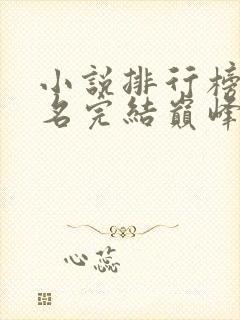 小説排行榜
名完結巔峰
心蕊